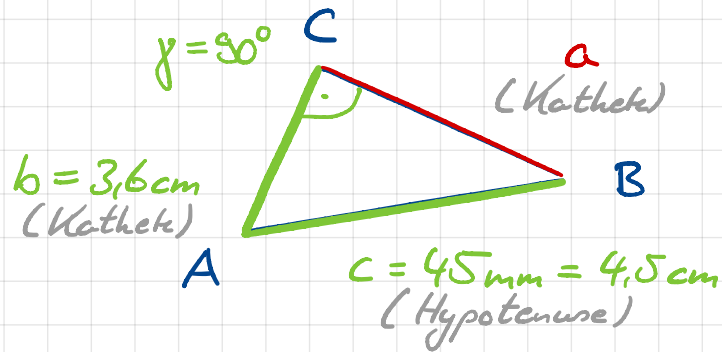 C
γ = 90°
a
(Kathete)
b = 3,6 cm
(Kathete)
B
A
c = 45 mm = 4,5 cm
(Hypotenuse)